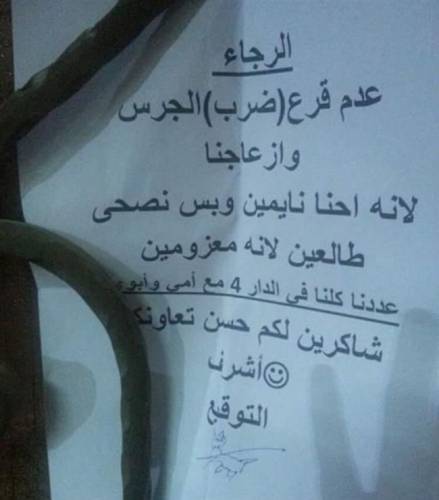 الرجاء
عدم قرع(ضرب)الجرس
وازعاجنا
لانه احنا نايمين وبس نصحى
طالعين لانه معزومين
عددنا كلنا في الدار 4 مع أمي وأبوي
شاكرين لكم حسن تعاونكم
☺أشرف
التوقع